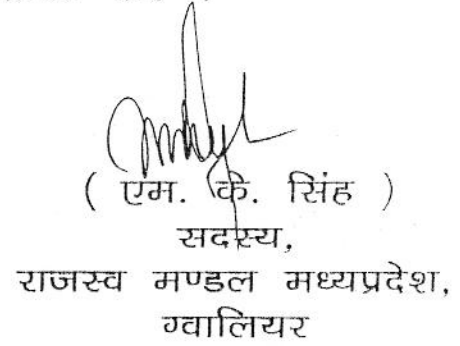 ( एम. के. सिंह )
सदस्य,
राजस्व मण्डल मध्यप्रदेश,
ग्वालियर